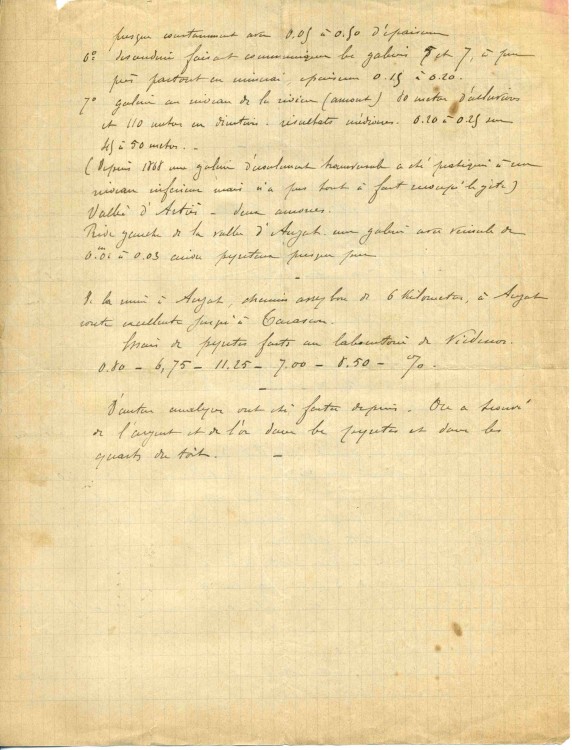 presque constamment avec 0.05 à 0.50 d'épaisseur
6º descenderie faisant communiquer les galeries 5 et 7, à peu
près partout en minerai, épaisseur 0.15 à 0.20.
7º galerie au niveau de la rivière (amont) 80 mètres d'allusions
et 110 mètres en direction. résultats médiocres. 0.20 à 0.25 sur
45 à 50 mètres. -
(Depuis 1868 une galerie d'écoulement transversale a été pratiquée à un
niveau inférieur mais n'a pas tout à fait recoupé le gîte)
Vallée d'Artiès - deux amorces.
Rive gauche de la vallée d'Auzat une galerie avec veinule de
0.m01 à 0.03 cuivre pyriteux presque pur
-
De la mine à Auzat, chemin assez bon de 6 kilomètres, à Auzat
route excellente jusqu'à Tarascon.
Essais de pyrites faits au laboratoire de Vicdessos.
0.80 - 6,75 - 11.25 - 7.00 - 8.50 - %.
-
D'autres analyses ont été faites depuis. On a trouvé
de l'argent et de l'or dans les pyrites et dans les
quartz du toit. -